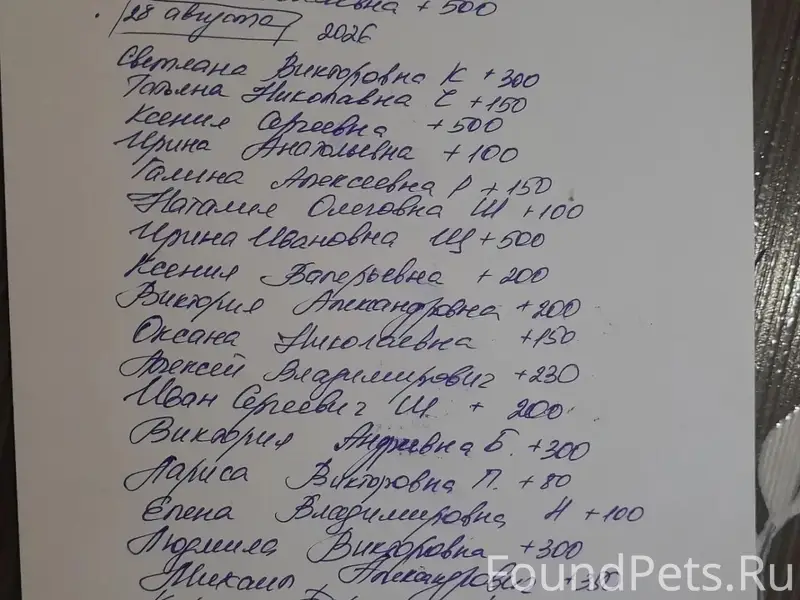 + 500
28 августа
2026
Светлана Викторовна К +300
Татьяна Николавна С +150
Ксения Сергеевна +500
Ирина Анатольевна +100
Галина Алексеевна Р +150
Наталия Олеговна Ш +100
Ирина Ивановна Щ +500
Ксения Валерьевна +200
Виктория Александровна +200
Оксана Николаевна +150
Алексей Владимирович +230
Иван Сергеевич Ш. + 200
Виктория Андревна Б. +300
Лариса Викторовна П. +80
Елена Владимировна Н +100
Людмила Викторовна +300
Александрович
FoundPets.Ru